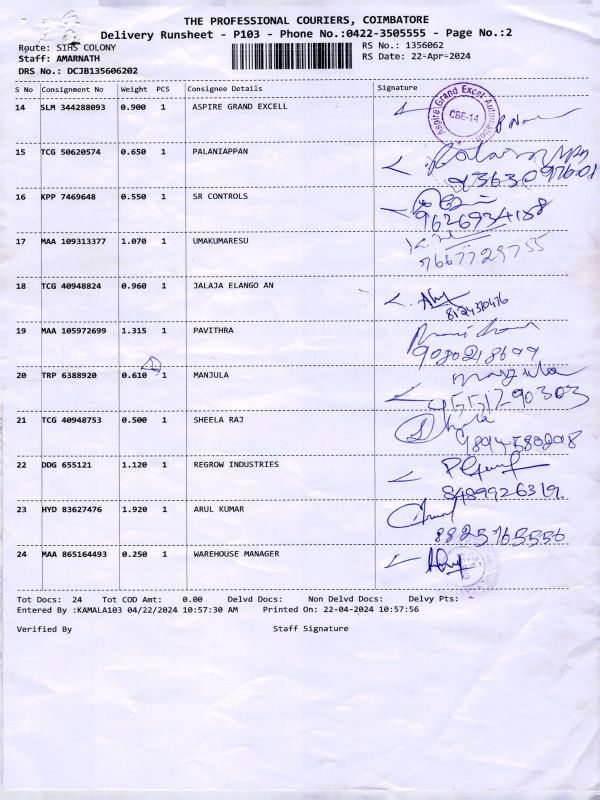 THE PROFESSIONAL COURIERS, COIMBATORE
Delivery Runsheet - P103 - Phone No.:0422-3505555 - Page No.:2
Route: SIHS COLONY
RS No.: 1356062
Staff: AMARNATH
RS Date: 22-Apr-2024
DRS No.: DCJB135606202
S No Consignment No Weight PCS Consignee Details Signature
14 SLM 344288093 0.900 1 ASPIRE GRAND EXCELL
Aspire Grand Excel Automation
CBE-14
15 TCG 50620574 0.650 1 PALANIAPPAN
9363097601
16 KPP 7469648 0.550 1 SR CONTROLS
9626934188
17 MAA 109313377 1.070 1 UMAKUMARESU
7667729755
18 TCG 40948824 0.960 1 JALAJA ELANGO AN
19 MAA 105972699 1.315 1 PAVITHRA
20 TRP 6388920 0.610 1 MANJULA
Manjula
9551290303
21 TCG 40948753 0.500 1 SHEELA RAJ
22 DDG 655121 1.120 1 REGROW INDUSTRIES
8489926319
23 HYD 83627476 1.920 1 ARUL KUMAR
8825165556
24 MAA 865164493 0.250 1 WAREHOUSE MANAGER
Tot Docs: 24 Tot COD Amt: 0.00 Delvd Docs: Non Delvd Docs: Delvy Pts:
Entered By :KAMALA103 04/22/2024 10:57:30 AM Printed On: 22-04-2024 10:57:56
Verified By Staff Signature